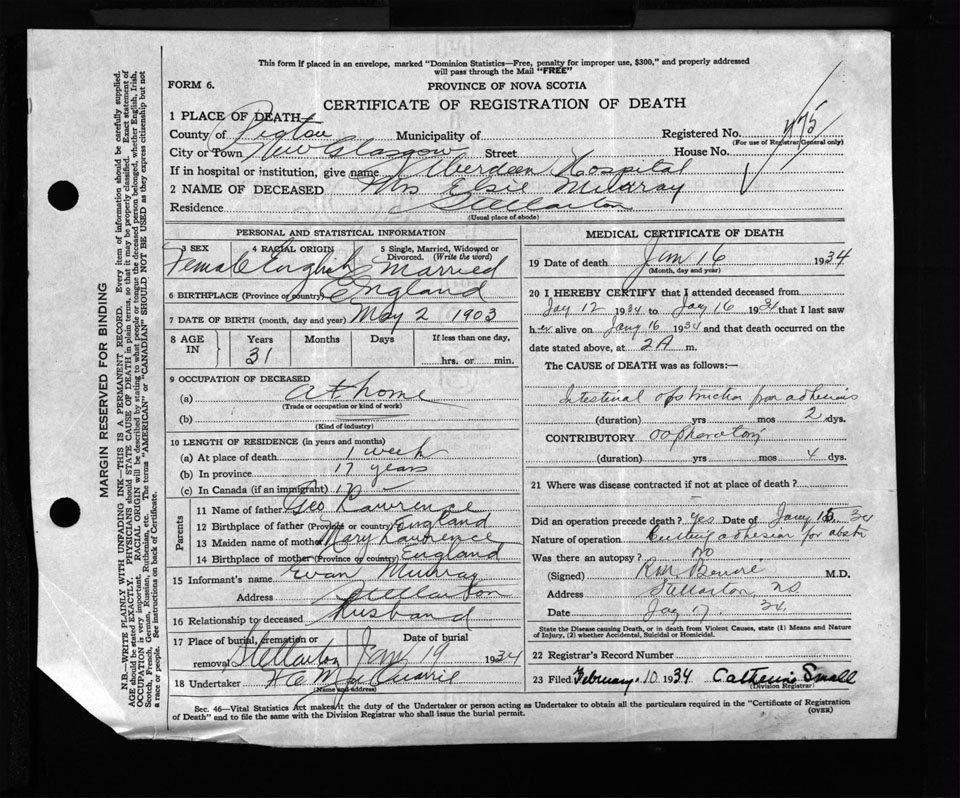 This form if placed in an envelope, marked "Dominion Statistics—Free, penalty for improper use, $300," and properly addressed
will pass through the Mail "FREE"
FORM 6.
PROVINCE OF NOVA SCOTIA
CERTIFICATE OF REGISTRATION OF DEATH
1 PLACE OF DEATH
County of Pictou Municipality of Registered No. 475
(For use of Registrar General only)
City or Town New Glasgow Street House No.
If in hospital or institution, give name Aberdeen Hospital
2 NAME OF DECEASED Mrs Elsie Murray
Residence Stellarton
(Usual place of abode)
PERSONAL AND STATISTICAL INFORMATION
3 SEX 4 RACIAL ORIGIN 5 Single, Married, Widowed or
Divorced. (Write the word)
Female English Married
6 BIRTHPLACE (Province or country) England
7 DATE OF BIRTH (month, day and year) May 2 1903
8 AGE IN Years Months Days If less than one day,
31 hrs. or min.
9 OCCUPATION OF DECEASED
(a) at home
(Trade or occupation or kind of work)
(b)
(Kind of industry)
10 LENGTH OF RESIDENCE (in years and months)
(a) At place of death 1 week
(b) In province 17 years
(c) In Canada (if an immigrant) 17
Parents
11 Name of father Geo Lawrence
12 Birthplace of father (Province or country) England
13 Maiden name of mother Mary Lawrence
14 Birthplace of mother (Province or country) England
15 Informant's name Evan Murray
Address Stellarton
16 Relationship to deceased Husband
17 Place of burial, cremation or removal Stellarton Date of burial Jan 19 1934
18 Undertaker
(Name and address)
MEDICAL CERTIFICATE OF DEATH
19 Date of death Jan 16 1934
(Month, day and year)
20 I HEREBY CERTIFY that I attended deceased from
Jay 12 1934 to Jay 16 1934 that I last saw
her alive on Jany 16 1934 and that death occurred on the
date stated above, at 2 A m.
The CAUSE of DEATH was as follows:—
Intestinal obstruction from adhesions
(duration) yrs mos 2 dys.
CONTRIBUTORY
(duration) yrs mos 4 dys.
21 Where was disease contracted if not at place of death?
Did an operation precede death? Yes Date of Jany 15 34
Nature of operation Cutting adhesion for obstr
Was there an autopsy? No
(Signed) M.D.
Address Stellarton, N.S.
Date Jay 17. 34.
State the Disease causing Death, or in death from Violent Causes, state (1) Means and Nature
of Injury, (2) whether Accidental, Suicidal or Homicidal.
22 Registrar's Record Number
23 Filed February 10 1934 Catherine Small
(Division Registrar)
Sec. 46—Vital Statistics Act makes it the duty of the Undertaker or person acting as Undertaker to obtain all the particulars required in the "Certificate of Registration
of Death" and to file the same with the Division Registrar who shall issue the burial permit.
(OVER)
MARGIN RESERVED FOR BINDING
N.B.—WRITE PLAINLY WITH UNFADING INK—THIS IS A PERMANENT RECORD. Every item of information should be carefully supplied.
AGE should be stated EXACTLY. PHYSICIANS should STATE CAUSE OF DEATH in plain terms, so that it may be properly classified. Exact statement of
OCCUPATION is very important. RACIAL ORIGIN will be described by stating to what people or tongue the deceased person belonged, whether English, Irish,
Scotch, French, German, Russian, Ruthenian, etc. The terms "AMERICAN" or "CANADIAN" SHOULD NOT BE USED as they express citizenship but not
a race or people. See instructions on back of Certificate.